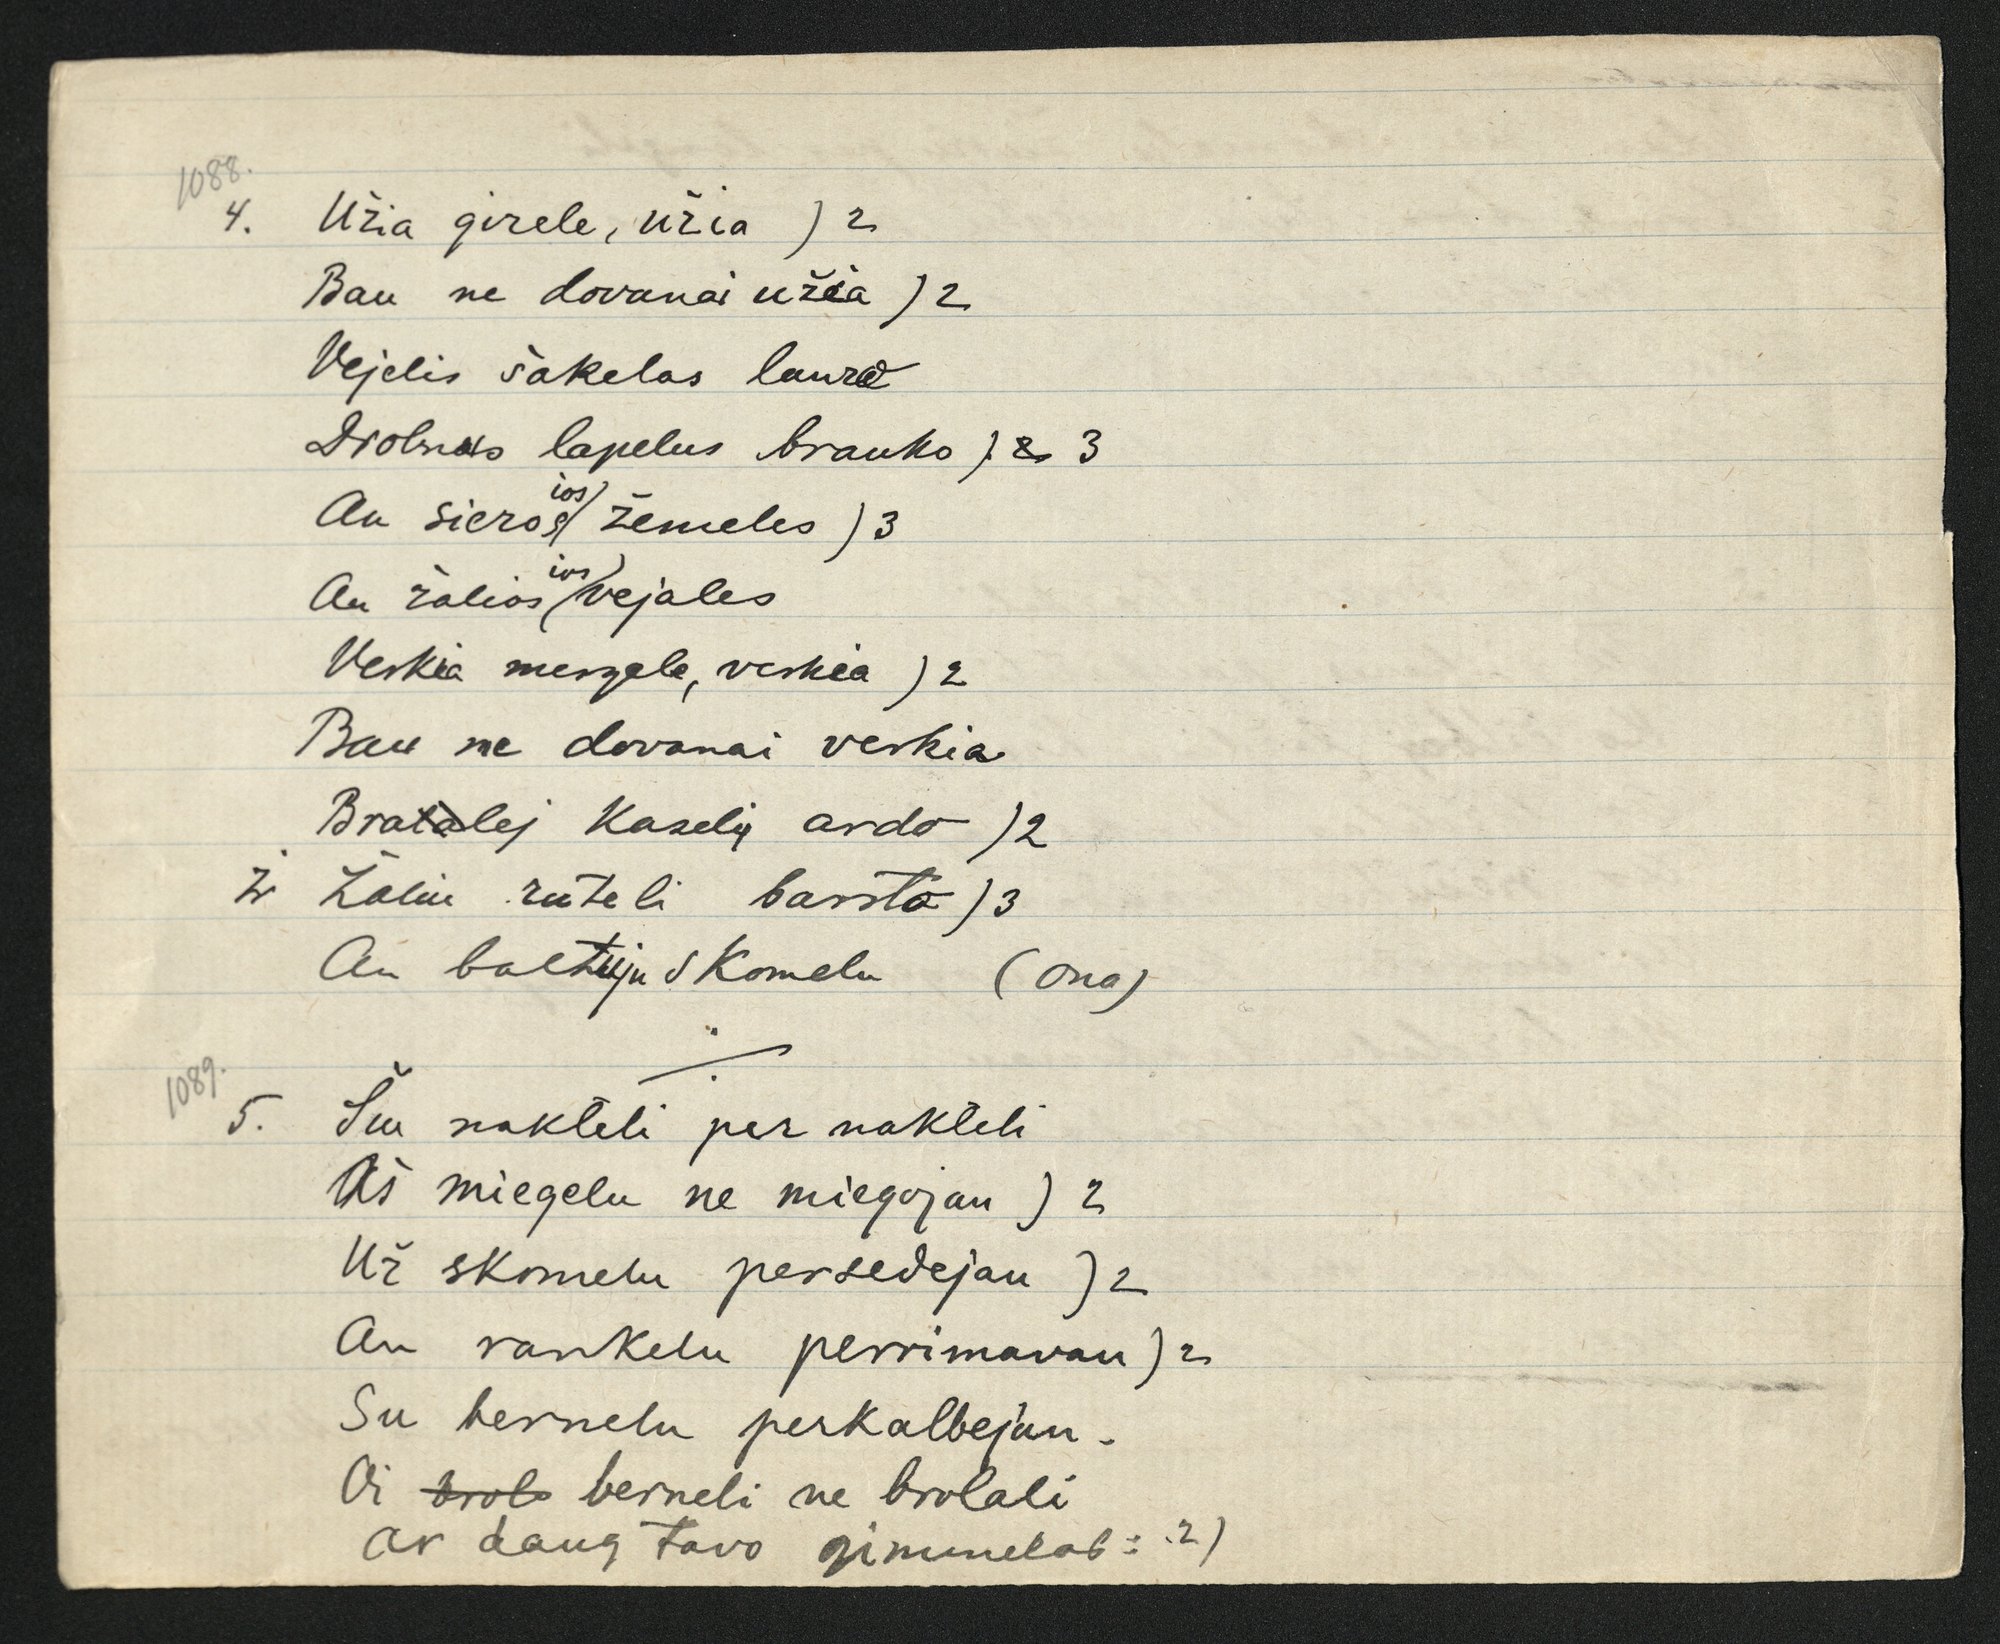 1088.
4. Užia girele, užia ) 2
Bau ne dovanai užia ) 2
Vejelis šakelas lauzo
Drobnus lapelus brauko ) 2 3
ios
An sieros žemeles ) 3
ios
An žalios vejales
Verkia mergele, verkia ) 2
Bau ne dovanai verkia
Bratalej kaselų ardo ) 2
ž Žaliu ruteli barsto ) 3
An baltuju skomelu (Ona)
1089.
5. Šiu nakteli per nakteli
Aš miegelu ne miegojau ) 2
Už skomelu persedejau ) 2
An rankelu perrimavau ) 2
Su bernelu perkalbejau.
Oi brol berneli ne brolali
ar daug tavo gimmelas : 2)